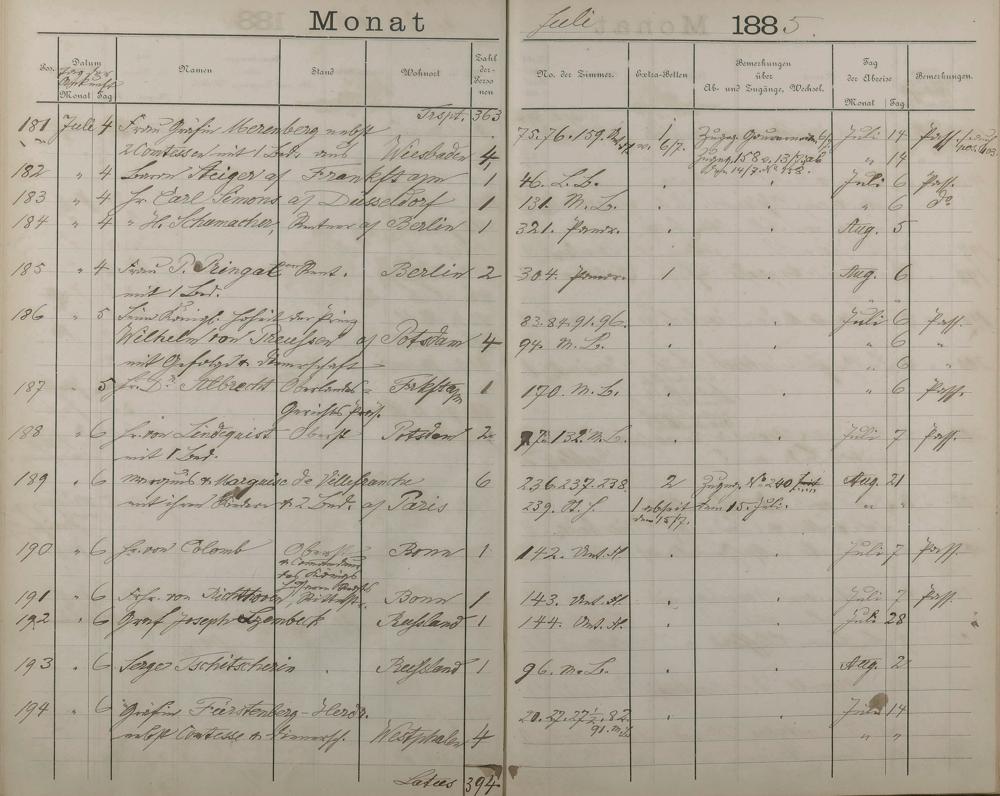 Monat
Juli 1885
Pos. Datum Namen Stand Wohnort Zahl der Personen
Tag der Ankunft
Monat Tag
No. der Zimmer. Extra-Betten Bemerkungen über Ab- und Zugänge, Wechsel. Tag der Abreise Bemerkungen.
Monat Tag
Trspt. 363
181 Juli 4 Frau Gräfin Merenberg nebst 75. 76. 159. 1 Juli 14 Pass.
2 Comtessen mit 1 Bed. aus Wiesbaden 4 v. 6/7. Zugeg. 158 v. 13/7. ab " 14
182 " 4 Baron Steiger a/ Frankft a/m 1 46. L. B. . . Juli 6 Pass.
183 " 4 Hr. Carl Simons a/ Düsseldorf 1 131. M. L. . . " 6 do
184 " 4 " H. Schumacher, Rentner a/ Berlin 1 321. . . Aug. 5
185 " 4 Frau P. Pringal Rent. Berlin 2 304. 1 . Aug. 6
mit 1 Bed.
186 " 5 Seine Königl. Hoheit der Prinz 83. 84. 91. 96. . . Juli 6 Pass.
Wilhelm von Preussen a/ Potsdam 4 94. M. L. . . " 6 "
mit Gefolge & Dienerschaft " 6 "
187 " 5 Hr. Dr. Albrecht Oberlandes- Frkft a/m 1 170. M. L. . . " 6 Pass.
Gerichts Präs.
188 " 6 Hr. von Lindequist Oberst Potsdam 2 97. 132. M. L. . . Juli 7 Pass.
mit 1 Bed.
189 " 6 Marquis & Marquise de Villefranche 6 236. 237. 238. 2 Zugeg. No 240 Aug. 21
mit ihren Kindern & 2 Bed. a/ Paris 239. 1 dem 15. Juli. " "
dem 15/7.
190 " 6 Hr. von Colomb Oberst Bonn 1 142. Unt. H. . . Juli 7 Pass.
& Commandeur
des Königs
191 " 6 Frhr. von Richthofen, Bonn 1 143. Unt. H. . . Juli 7 Pass.
192 " 6 Graf Joseph Szembek Russland 1 144. Unt. H. . . Juli 28
193 " 6 Serge Tschitscherin . Russland 1 96. M. L. . . Aug. 2
194 " 6 Gräfin Fürstenberg-Herdr. 20. 27. 27½. 82. . . Juli 14
nebst Comtesse & Dienersch. Westphalen 4 91. " "
Latus 394